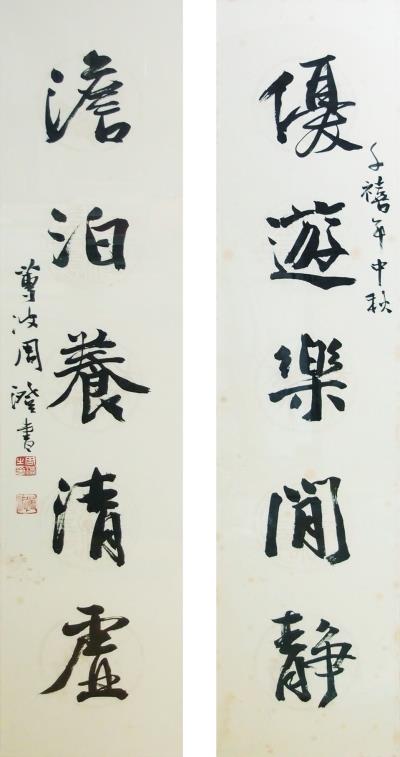 優遊樂閒靜
千禧年中秋
澹泊養清虛
蓴波周澄書